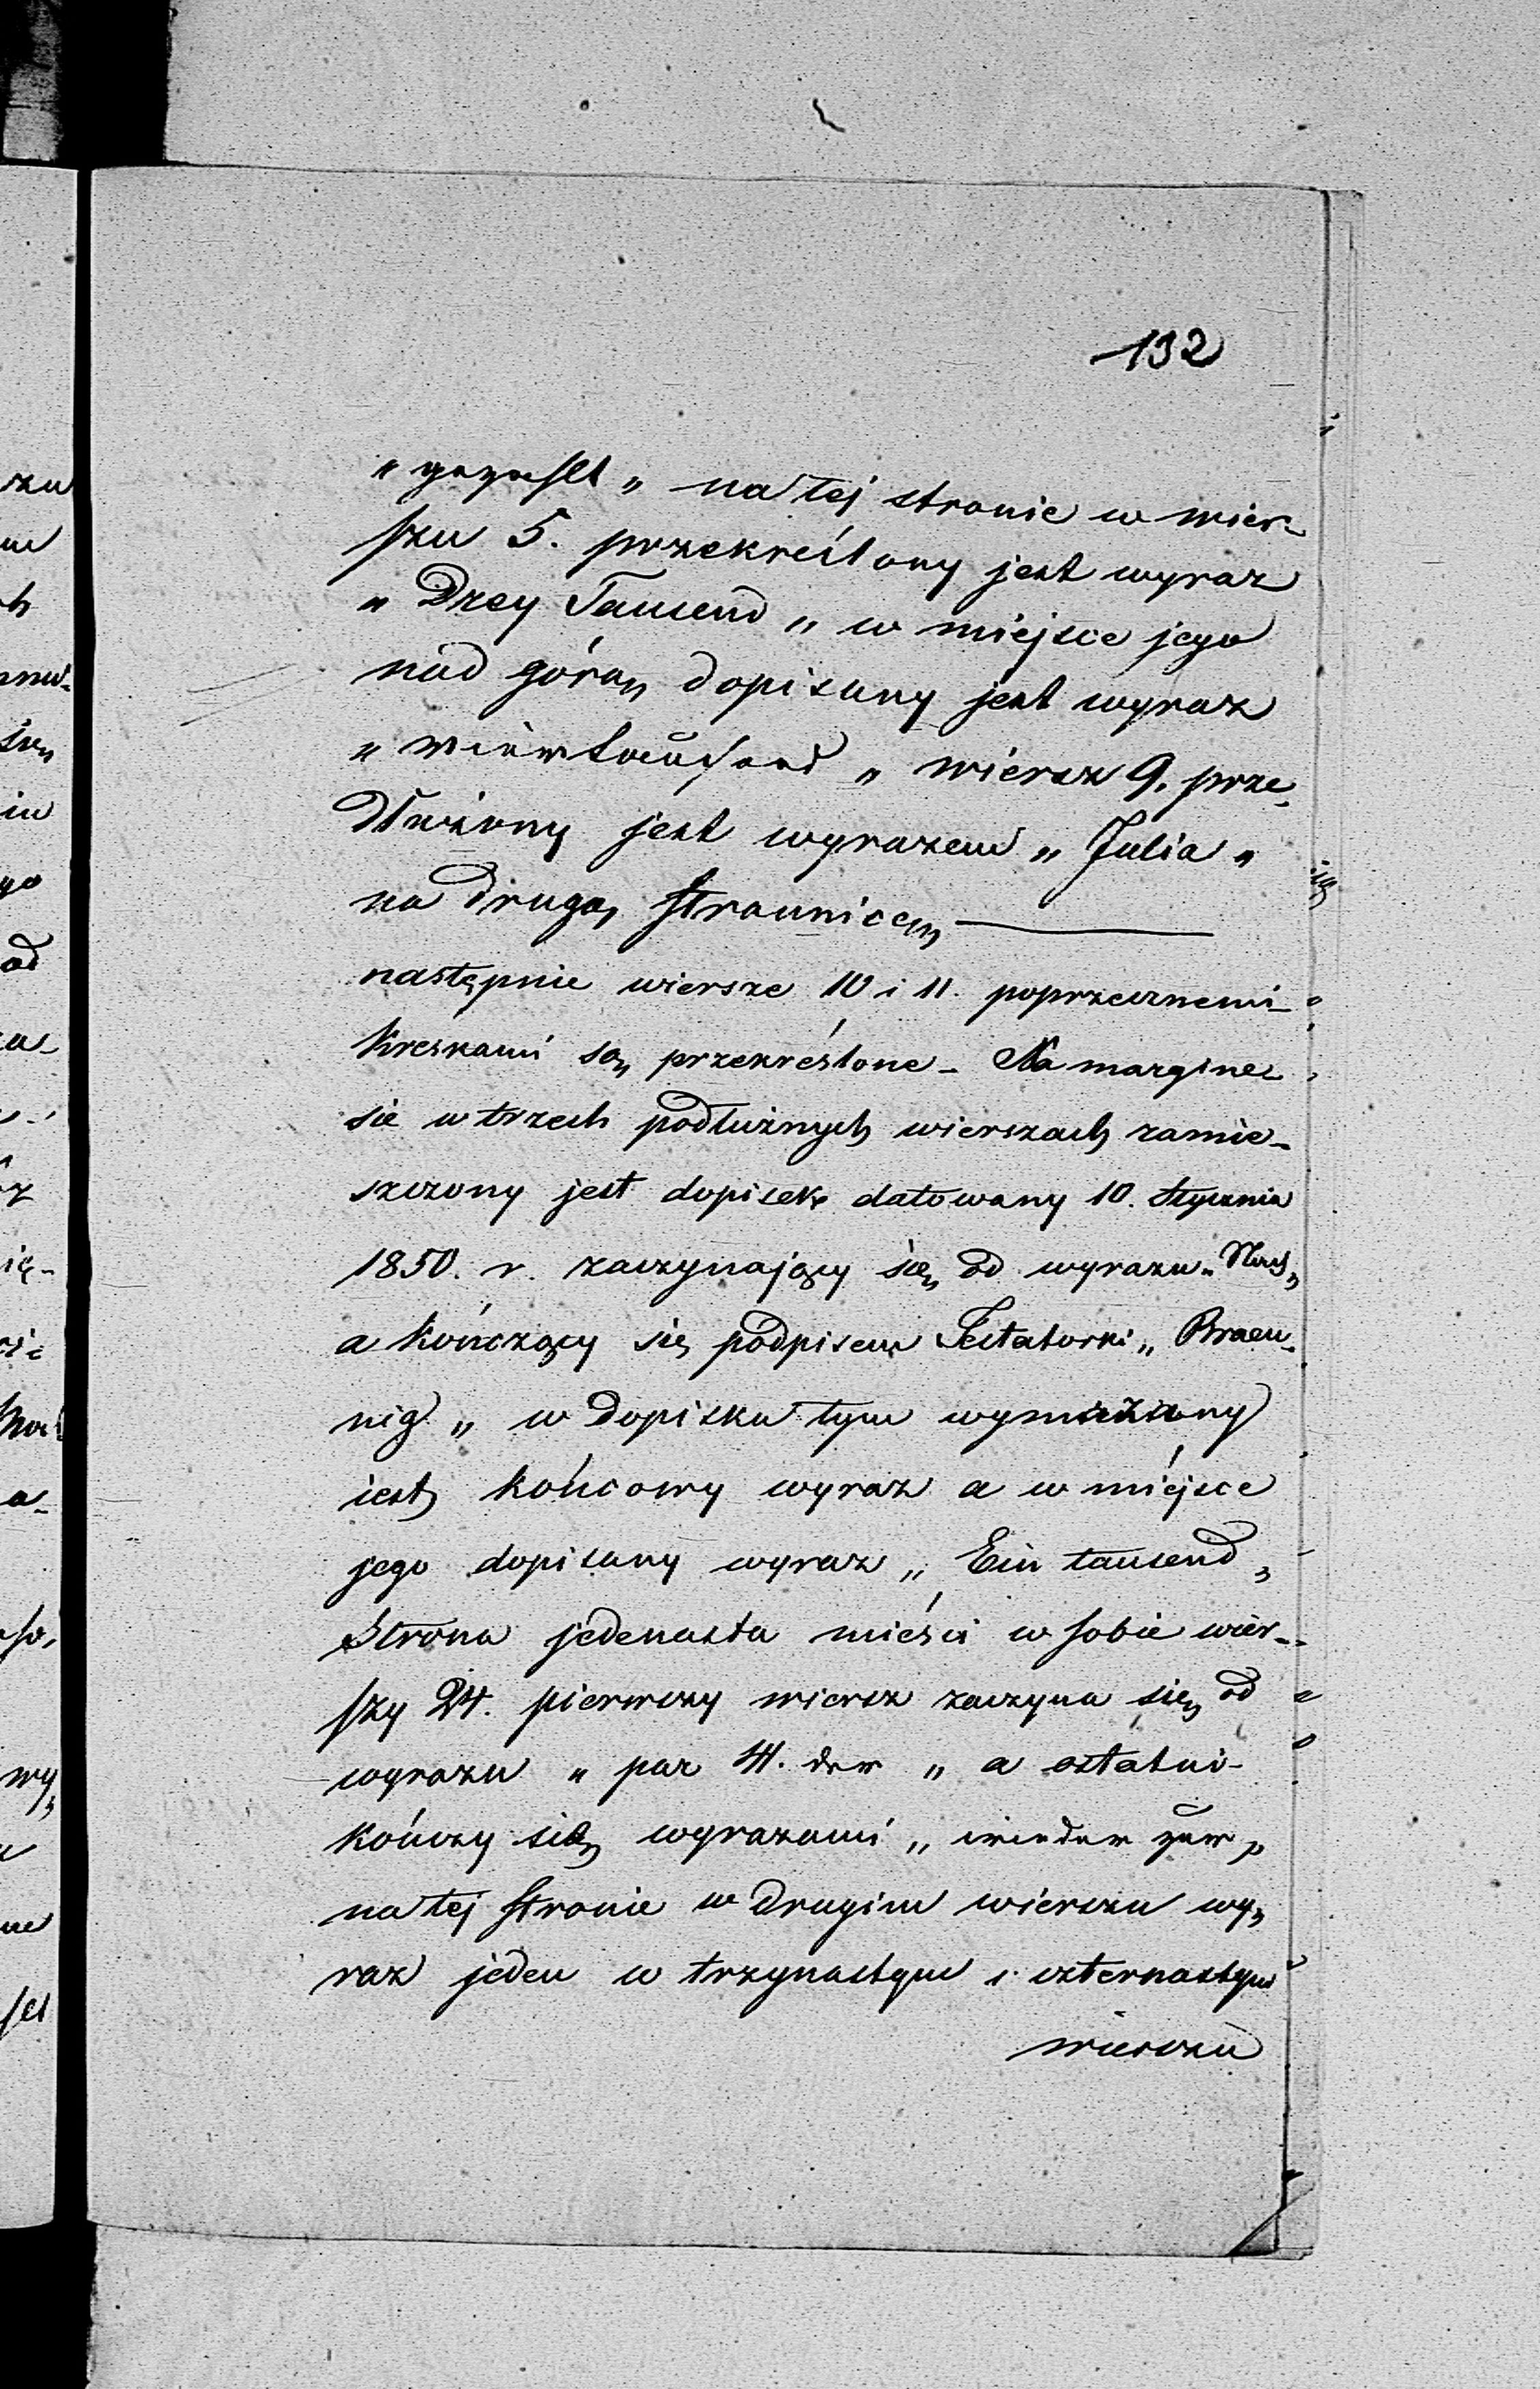 132
„gezahlt„ na tej stronie w wier-
szu 5. przekreślony jest wyraz
„Drey Tausend„ w miejsce jego
nad górą dopisany jest wyraz
„ wiersz 9. prze-
dłużony jest wyrazem „Julia„
na drugą stronnicę —
następnie wiersze 10 i 11. poprzecznemi
kreskami są przekreślone - Na margine-
sie w trzech podłużnych wierszach zamie-
szczony jest dopisek datowany 10. Stycznia
1850. r. zaczynający się od wyrazu „Nach„
a kończący się podpisem Testatorki „Braeu-
nig„ w dopisku tym wymazany
jest końcowy wyraz a w miejsce
jego dopisany wyraz „Ein tausend„
Strona jedenasta mieści w sobie wier-
szy 24. pierwszy wiersz zaczyna się od
wyrazu „par 4. der„ a ostatni
kończy się wyrazami „
na tej stronie w drugim wierszu wy-
raz jeden w trzynastym i czternastym
wierszu